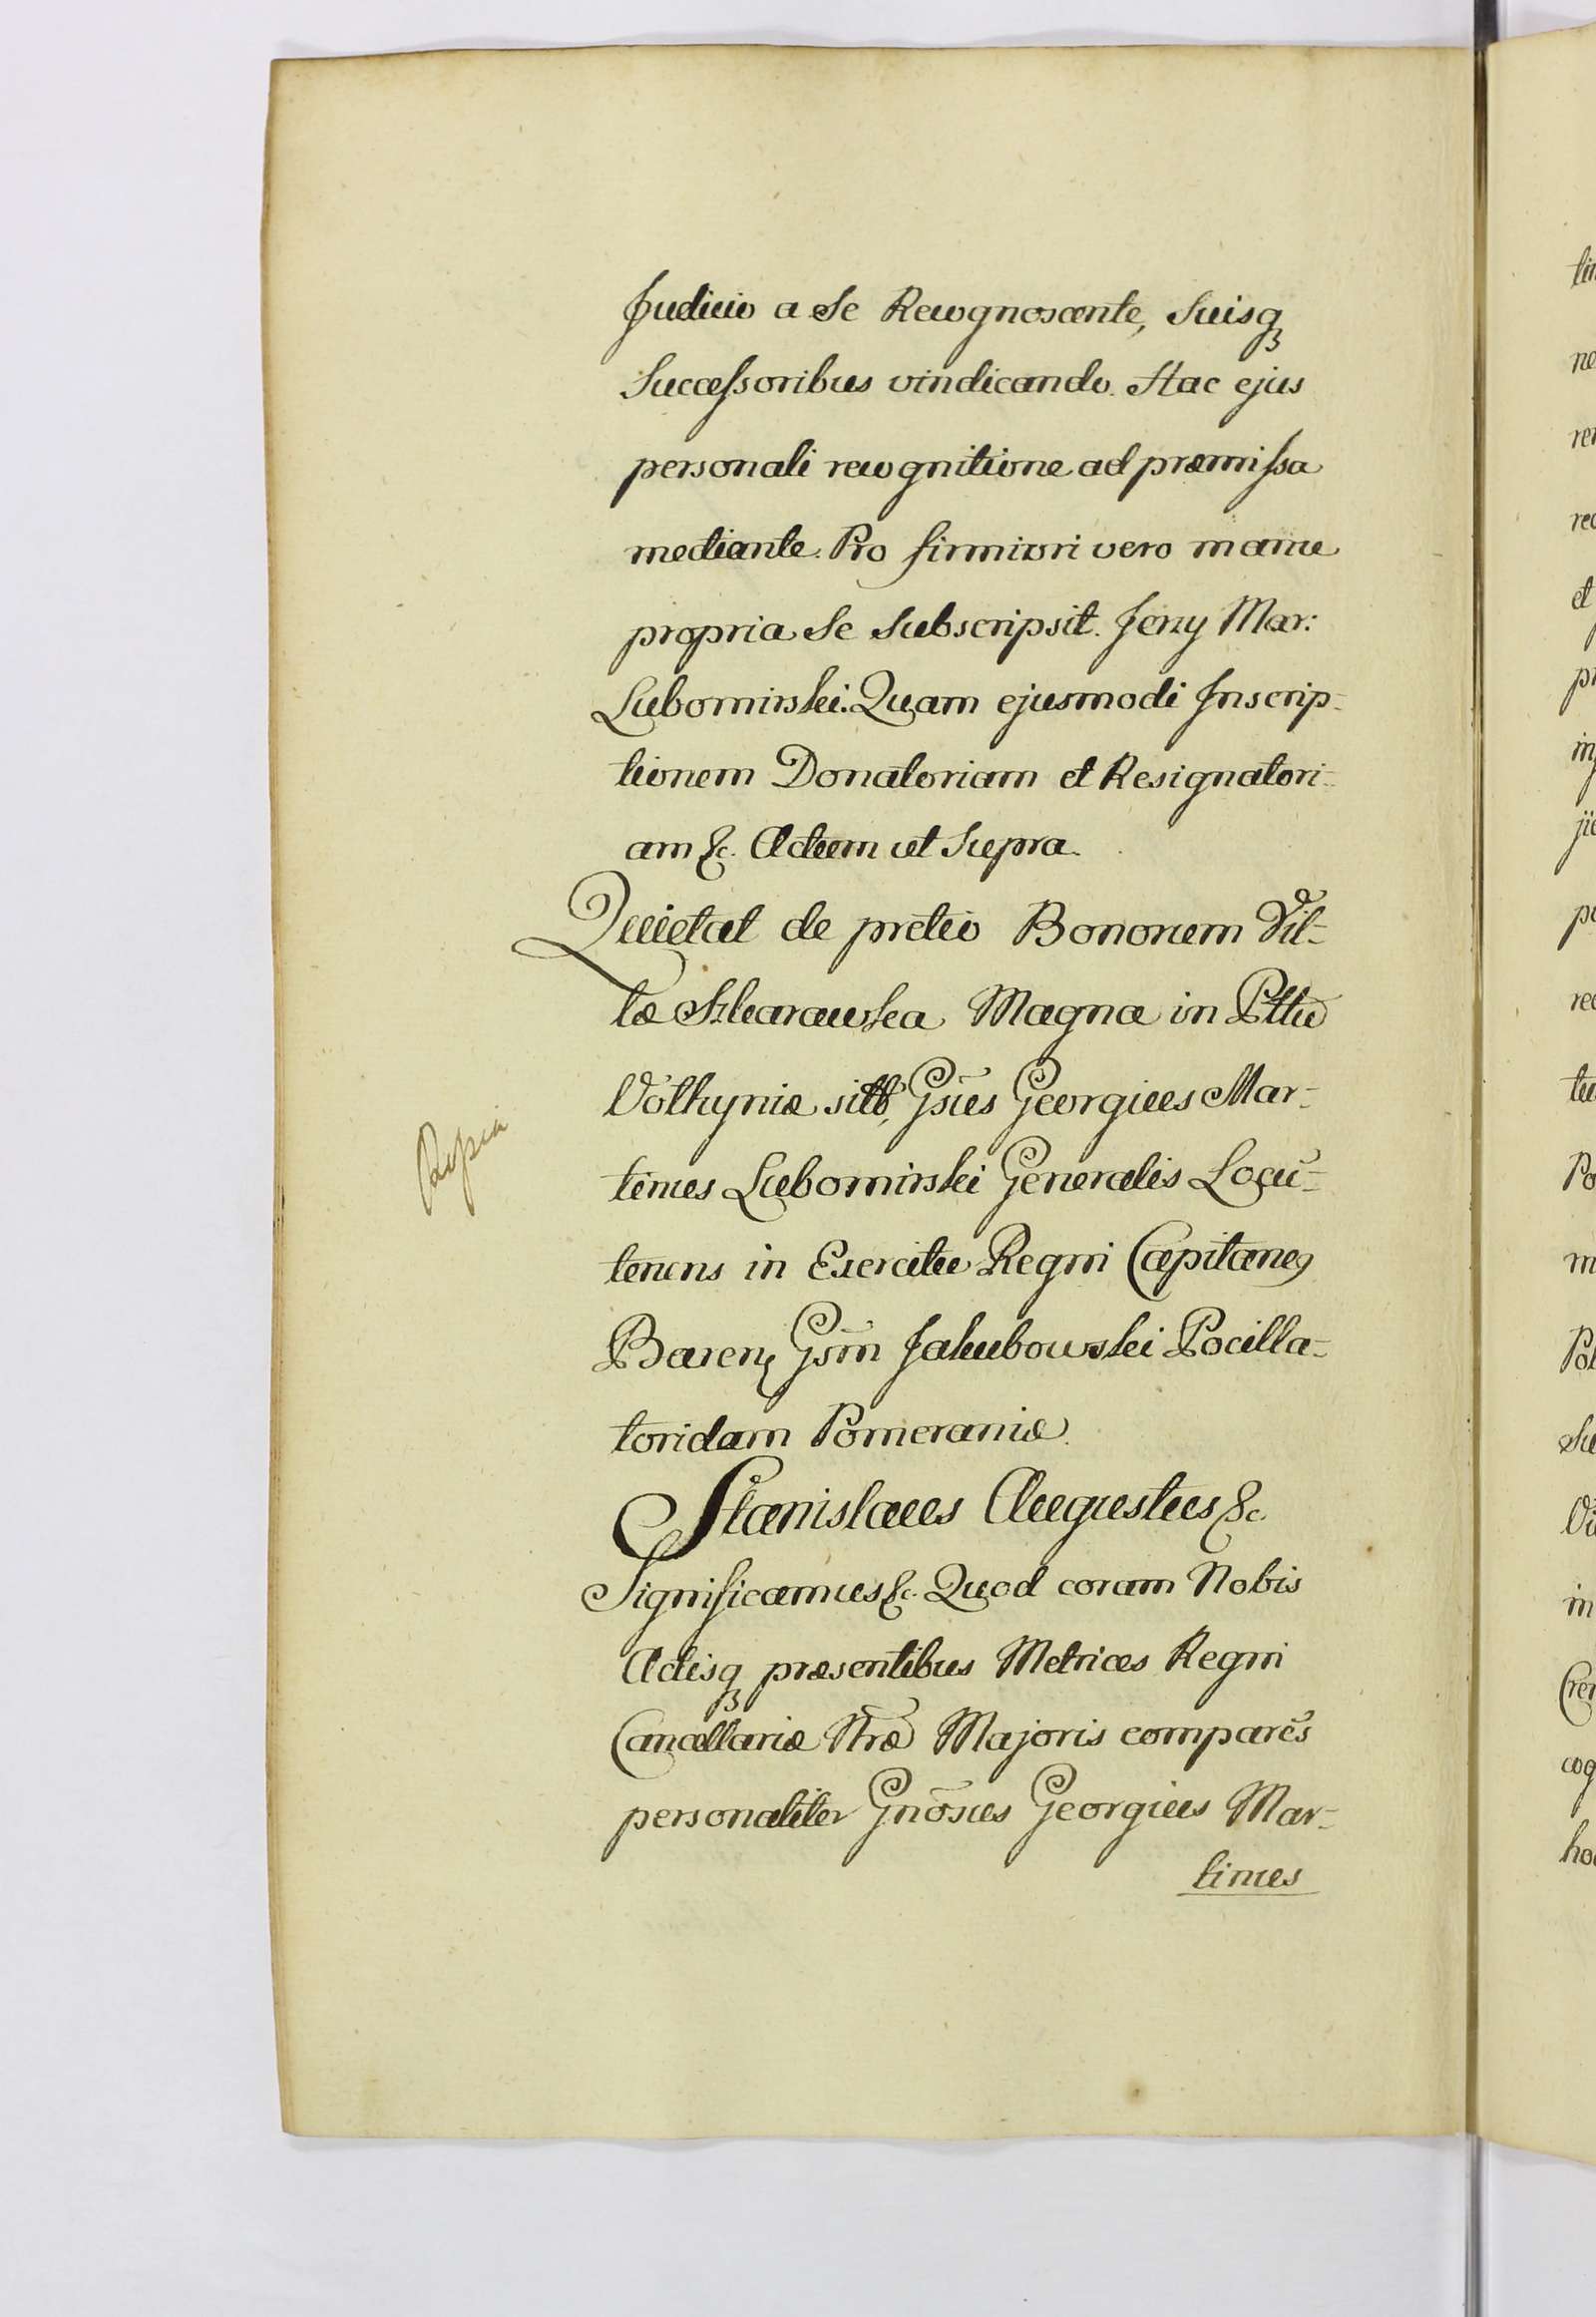 Judicio a Se Recognoscente, Suisq
Successoribus vindicando. Hac ejus
personali recognitione ad præmissa
mediante. Pro firmiori vero manu
propria Se Subscripsit. Jerzy Mar:
Lubomirski. Quam ejusmodi Inscrip-
tionem Donatoriam et Resignatori-
am &c. Actum ut Supra.
Quietat de pretio Bonorum Vil-
læ Magna in Pttu
Volhyniæ sitt, Gsus Georgius Mar-
tinus Lubomirski Generalis Locu-
tenens in Exercitu Regni Capitaneg
Baren Gsm Jakubowski Pocilla-
toridam Pomeraniæ.
Stanislaus Augustus &c.
Significamus &c. Quod coram Nobis
Actisq præsentibus Metrices Regni
Cancellariæ Nræ Majoris comparēs
personaliter Gnōsus Georgius Mar-
tinus